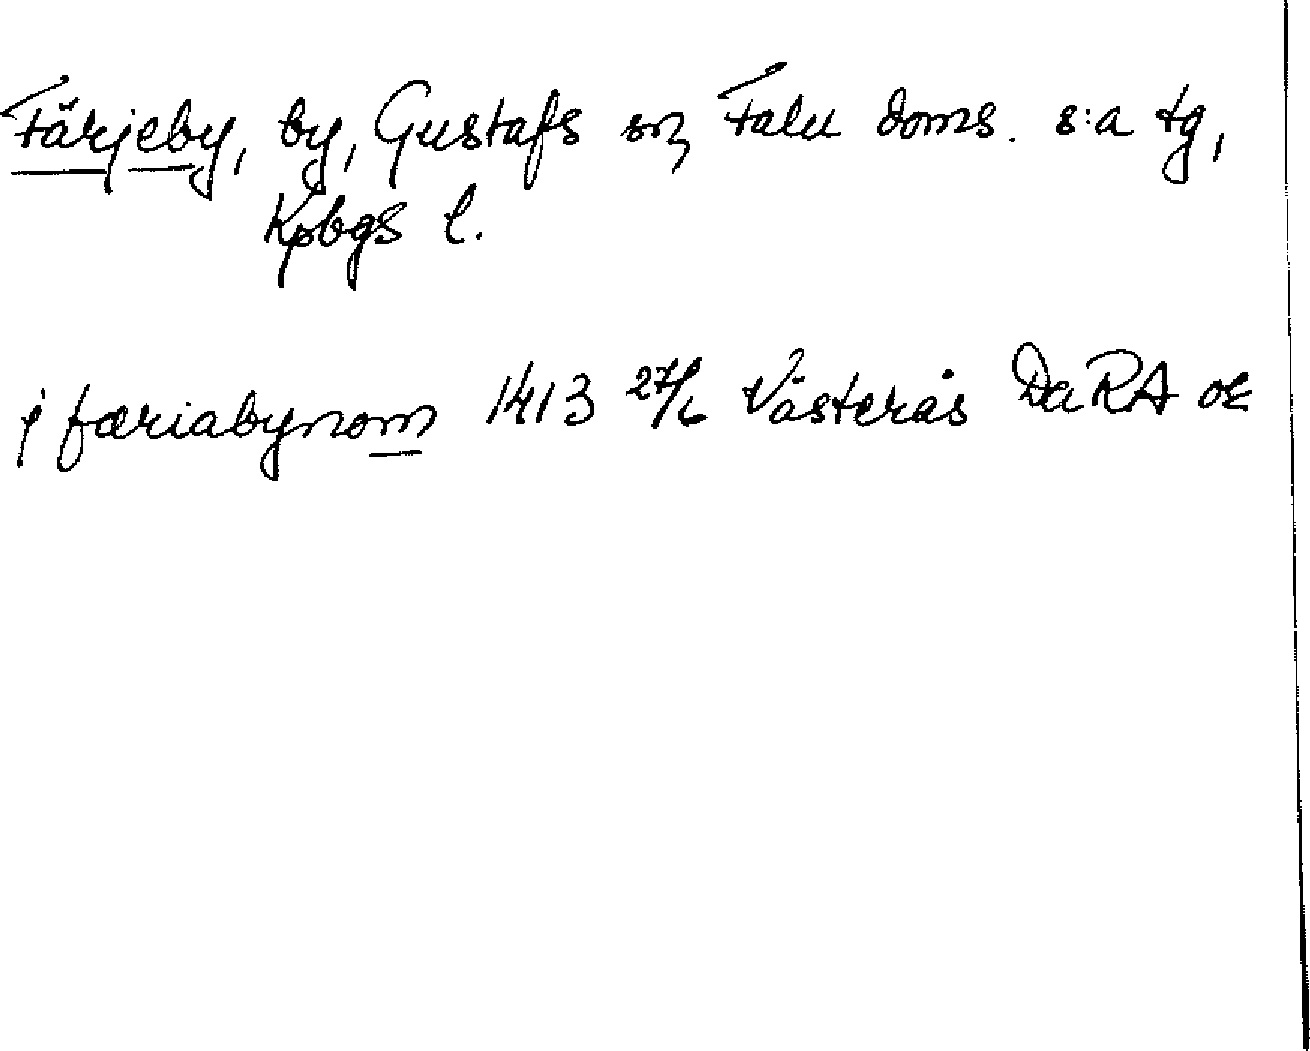 Färjeby, by, Gustafs sn, Falu doms. s:a tg,
Kpbgs l.
j færiabynom 1413 27/6 Västerås Da RA or